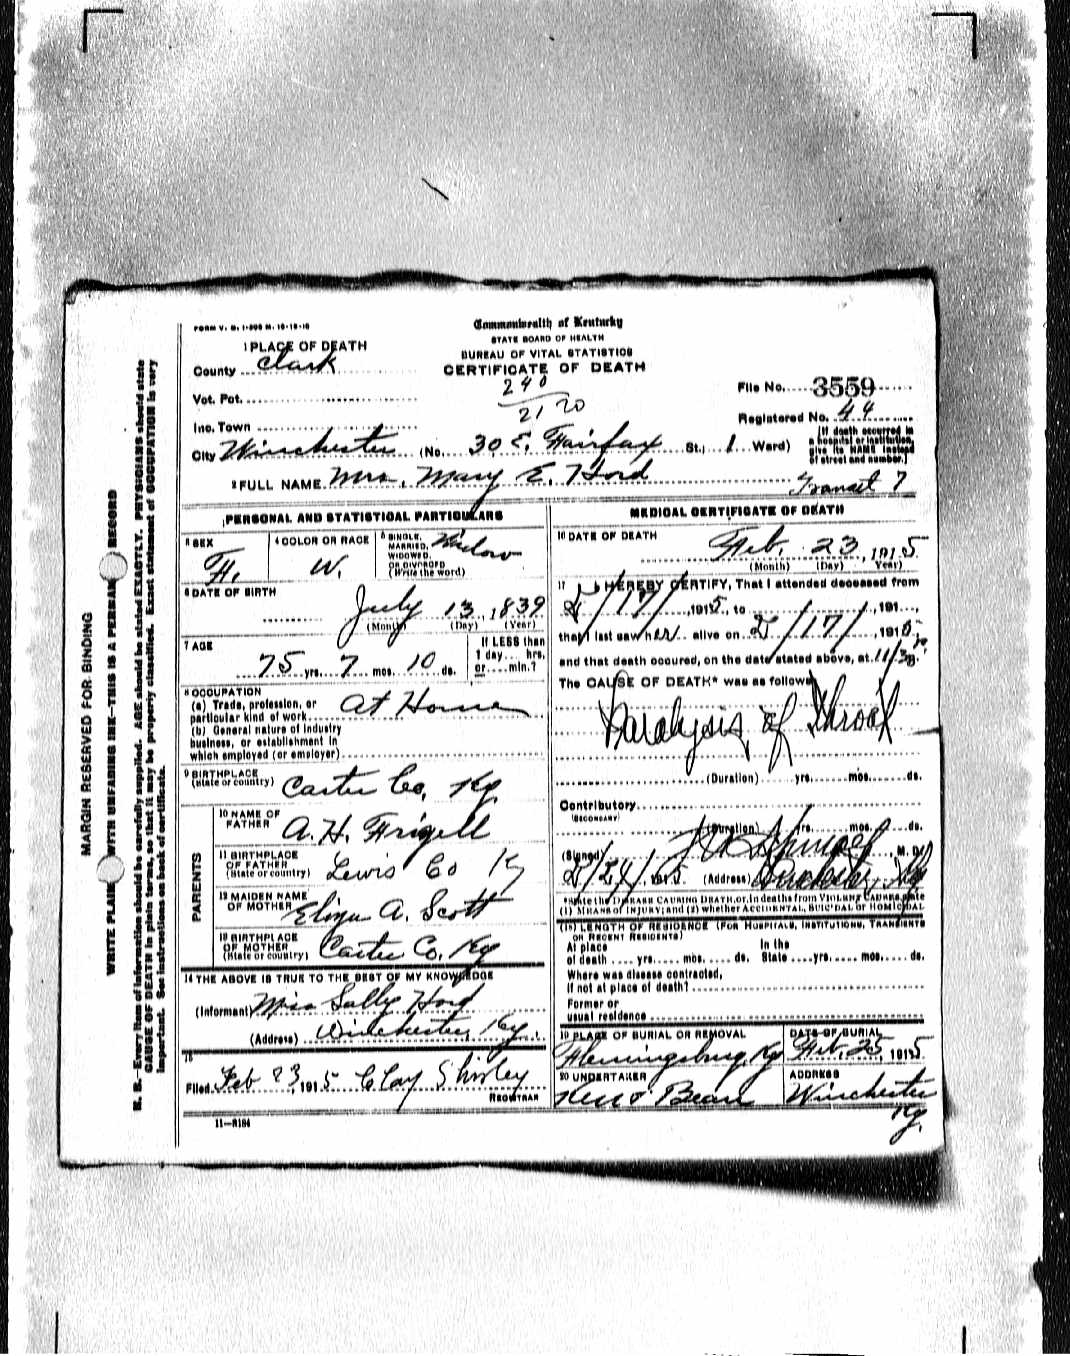 FORM V. S. 1-
Commonwealth of Kentucky
STATE BOARD OF HEALTH
BUREAU OF VITAL STATISTICS
CERTIFICATE OF DEATH
1 PLACE OF DEATH
County Clark
Vot. Pct.
Inc. Town
City Winchester (No. 30 E. Fairfax St.; 1 Ward)
240
2120
File No. 3559
Registered No. 44
[If death occurred in a hospital or institution, give its NAME instead of street and number.]
2 FULL NAME Mrs. Mary E. Hord
Transit 7
PERSONAL AND STATISTICAL PARTICULARS
3 SEX F.
4 COLOR OR RACE W.
5 SINGLE, MARRIED, WIDOWED, OR DIVORCED (Write the word) Widow
6 DATE OF BIRTH
July 13, 1839
(Month) (Day) (Year)
7 AGE
75 yrs. 7 mos. 10 ds.
If LESS than 1 day... hrs. or.... min.?
8 OCCUPATION
(a) Trade, profession, or particular kind of work At Home
(b) General nature of industry business, or establishment in which employed (or employer)
9 BIRTHPLACE (State or country) Carter Co, Ky.
PARENTS
10 NAME OF FATHER A. H. Frizell
11 BIRTHPLACE OF FATHER (State or country) Lewis Co Ky
12 MAIDEN NAME OF MOTHER Eliza A. Scott
13 BIRTHPLACE OF MOTHER (State or country) Carter Co. Ky
14 THE ABOVE IS TRUE TO THE BEST OF MY KNOWLEDGE
(Informant) Miss Sally Hord
(Address) Winchester, Ky.
15
Filed Feb 23, 1915 Clay Shirley
REGISTRAR
11—
MEDICAL CERTIFICATE OF DEATH
16 DATE OF DEATH
Feb. 23, 1915
(Month) (Day) Year)
17 I HEREBY CERTIFY, That I attended deceased from
2/17/, 1915, to , 191...,
that I last saw her alive on 2/17/, 1915
and that death occured, on the date stated above, at
The CAUSE OF DEATH* was as follows:
Paralysis of Throat
(Duration) yrs. mos. ds.
Contributory
(SECONDARY)
(Duration) yrs. mos. ds.
(Signed) , M. D.
1915 (Address) Winchester, Ky
*State the DISEASE CAUSING DEATH, or, in deaths from VIOLENT CAUSES, state
(1) MEANS OF INJURY; and (2) whether ACCIDENTAL, SUICIDAL OR HOMICIDAL
(18) LENGTH OF RESIDENCE (FOR HOSPITALS, INSTITUTIONS, TRANSIENTS OR RECENT RESIDENTS)
At place of death .... yrs. .... mos. .... ds. In the State .... yrs. .... mos. .... ds.
Where was disease contracted, If not at place of death?
Former or usual residence
19 PLACE OF BURIAL OR REMOVAL Flemingsburg, Ky
DATE OF BURIAL Feb. 25 1915
20 UNDERTAKER
ADDRESS Winchester Ky.
MARGIN RESERVED FOR BINDING
WRITE PLAINLY WITH UNFADING INK—THIS IS A PERMANENT RECORD
N. B.—Every item of information should be carefully supplied. AGE should be stated EXACTLY. PHYSICIANS should state
CAUSE OF DEATH in plain terms, so that it may be properly classified. Exact statement of OCCUPATION is very
important. See instructions on back of certificate.